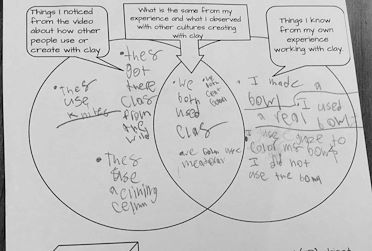 Things I noticed
from the video
about how other
people use or
create with clay
What is the same from my
experience and what I observed
with other cultures creating
with clay
Things I know
from my own
experience
working with clay.
• they
got
there
Clay
from
the
wild
• They
use
knifes
• They
use
a
• We
both
used
Clay
• we
both
• I made a
bowl I used
a real bowl
I use to
color my bowl
I did not
use the